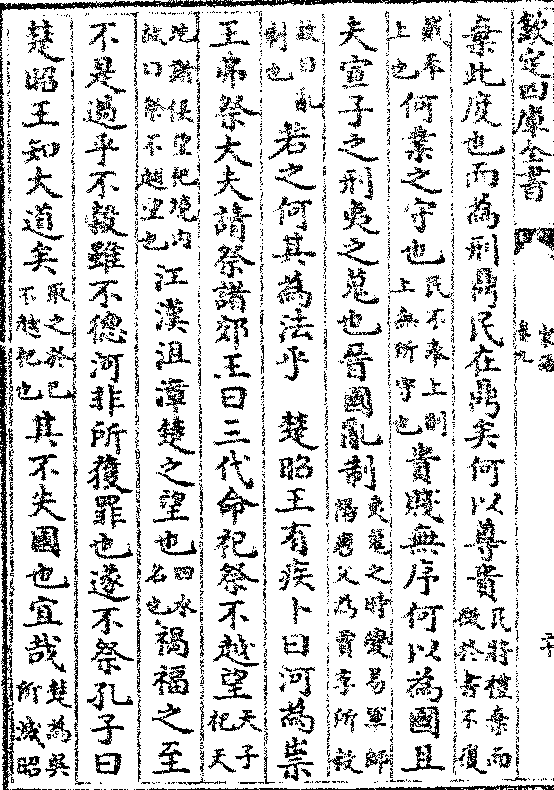 欽定四庫全書 家語卷九
棄此度也而為刑鼎民在鼎矣何以尊貴民將禮棄而徵於書不復
戴奉上也何業之守也民不奉上則上無所守也貴賤無序何以為國且
夫宣子之刑夷之蒐也晉國亂制夷蒐之時變易軍師陽處父為賈季所殺
故曰亂制也若之何其為法乎 楚昭王有疾卜曰河為祟
王弗祭大夫請祭諸郊王曰三代命祀祭不越望天子祀天
地諸侯望祀境内故曰祭不越望也江漢沮漳楚之望也四水名也禍福之至
不是過乎不穀雖不德河非所獲罪也遂不祭孔子曰
楚昭王知大道矣取之於己不越祀也其不失國也宜哉楚為吳所滅昭